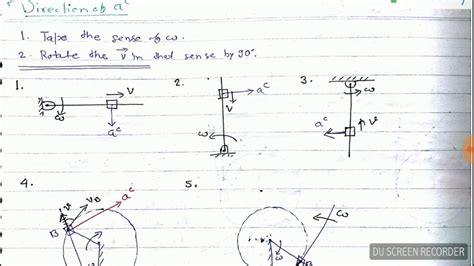 Direction of aᶜ
1. Take the sense of ω.
2. Rotate the v⃗ in that sense by 90°.
1. 2. 3.
V
ω
aᶜ
aᶜ
V
ω
ω
V
aᶜ
4. 5.
V V_B aᶜ
B
ω
B
DU SCREEN RECORDER